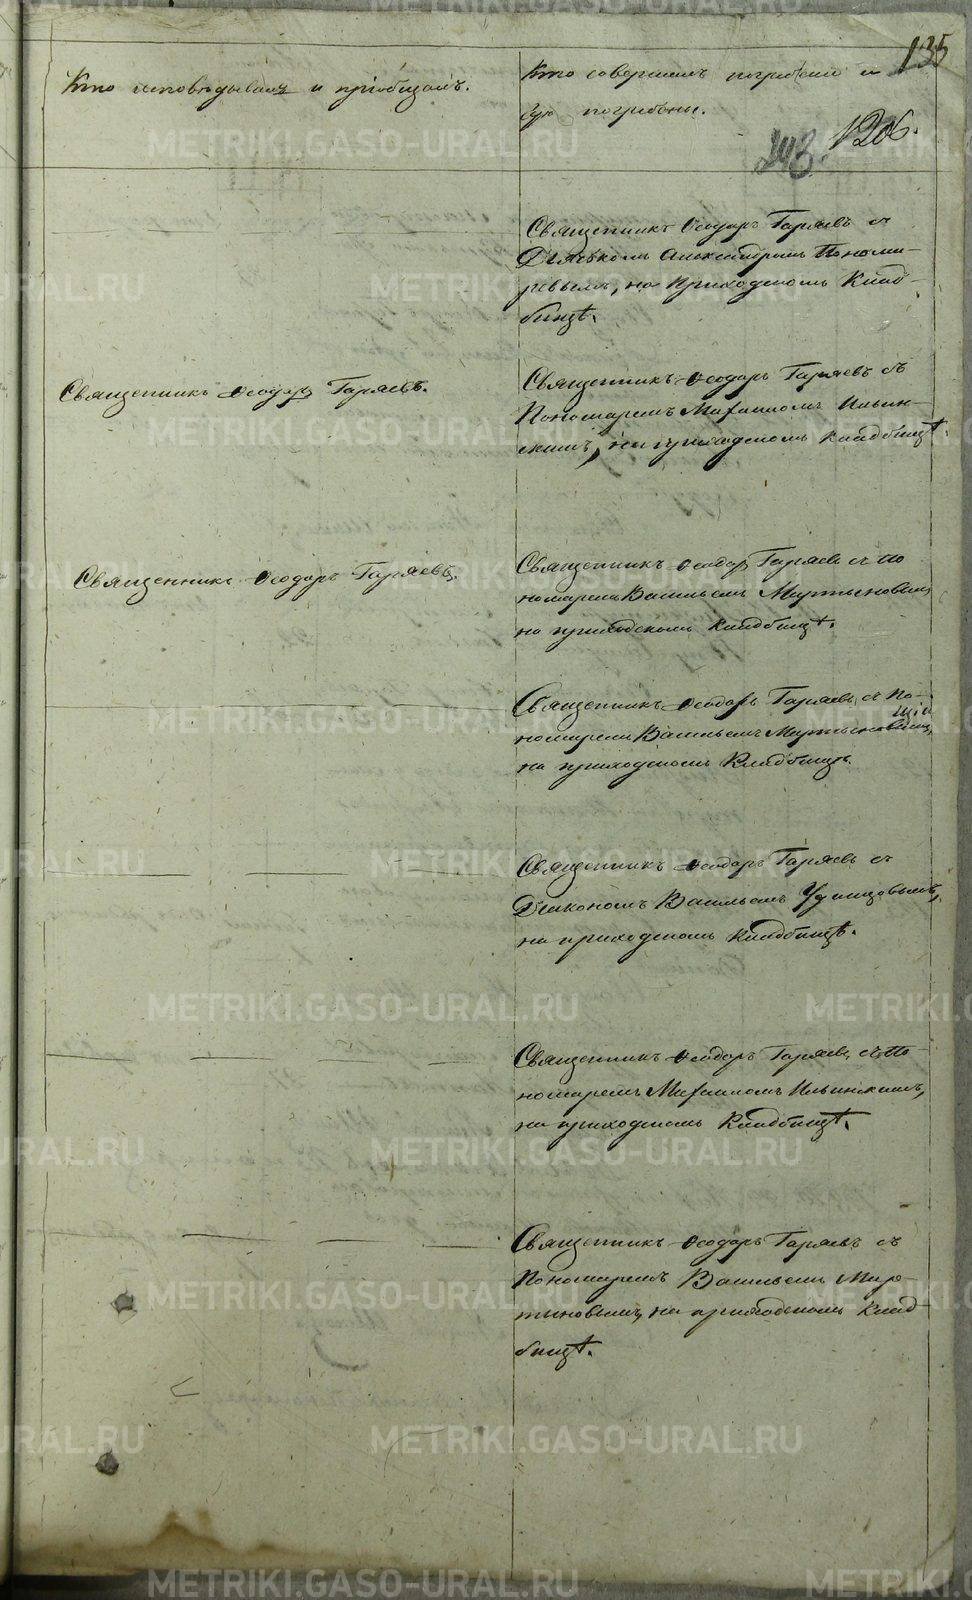 135
Кто исповѣдывалъ и пріобщалъ.
Кто совершалъ погребеніе и
гдѣ погребены.
203. 1206.
Священникъ Ѳеодоръ Гаряевъ съ
Дьячкомъ Александромъ Понома-
ревымъ, на Приходскомъ Клад-
бищѣ.
Священникъ Ѳеодоръ Гаряевъ.
Священникъ Ѳеодоръ Гаряевъ съ
Пономаремъ Михаиломъ Ильин-
скимъ, на приходскомъ кладбищѣ.
Священникъ Ѳеодоръ Гаряевъ.
Священникъ Ѳеодоръ Гаряевъ съ по
номаремъ Васильемъ Мартыновымъ,
на приходскомъ кладбищѣ.
Священникъ Ѳеодоръ Гаряевъ, съ По-
номаремъ Васильемъ Мартыновымъ,
на приходскомъ Кладбищѣ.
Священникъ Ѳеодоръ Гаряевъ съ
Діакономъ Васильемъ Удинцовымъ,
на приходскомъ Кладбищѣ.
Священникъ Ѳеодоръ Гаряевъ, съ По-
номаремъ Михаиломъ Ильинскимъ,
на приходскомъ Кладбищѣ.
Священникъ Ѳеодоръ Гаряевъ съ
Пономаремъ Васильемъ Мар-
тыновымъ, на приходскомъ Клад-
бищѣ.
METRIKI.GASO-URAL.RU